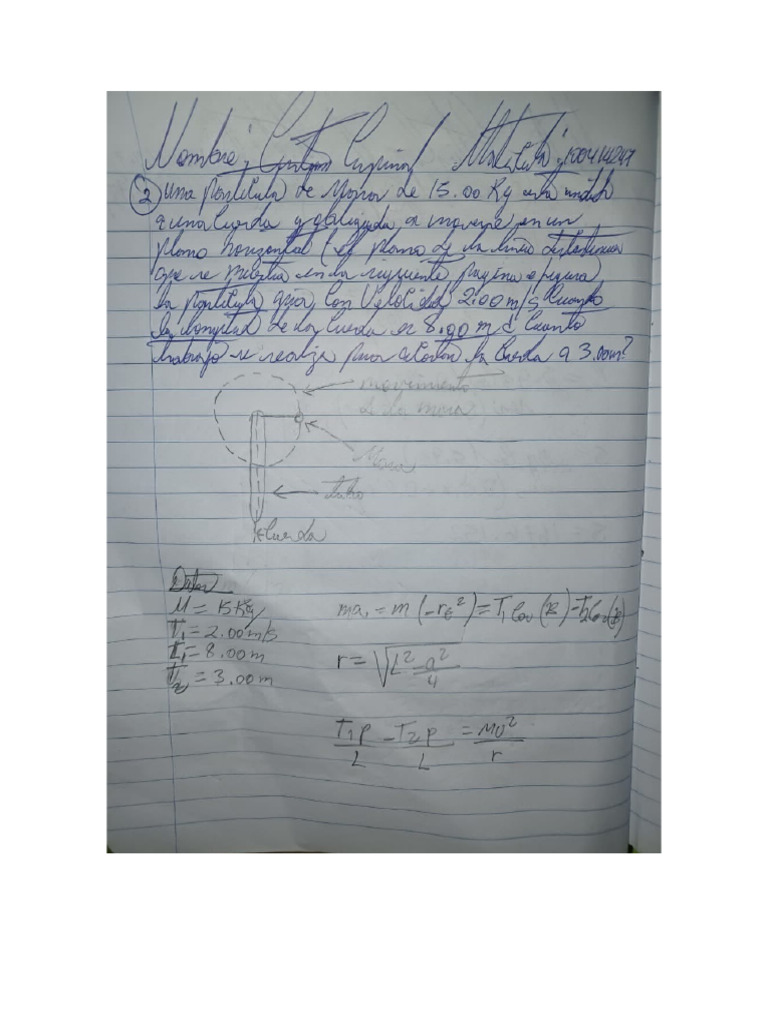 Nombre: Matricula: 100414247
② una partícula de Masa de 15.00 Kg esta unida
a una cuerda y obligada a moverse en un
plano horizontal (el plano de la linea
que se muestra en la siguiente pagina o figura)
la partícula gira con Velocidad 2.00 m/s Cuando
la longitud de la Cuerda es 8.00 m ¿ Cuanto
trabajo se realiza para acortar la Cuerda a 3.00m?
movimiento
de la masa
Masa
tubo
Cuerda
Datos
M = 15 Kg
T₁ = 2.00 m/s
I₁ = 8.00 m
T₂ = 3.00 m
ma₁ = m (-r₆²) = T₁ Cos (B) - T₂ Cos (B)
r = √L² a²/4
T₁P/L - T₂P/L = MU²/r